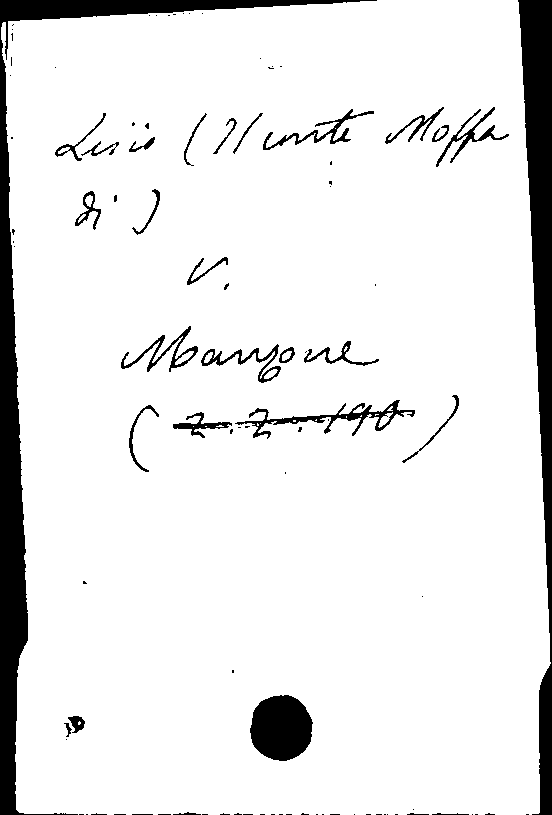 Lisio (Il conte Moffa
di)
v.
Manzone
(Z.Z.190)